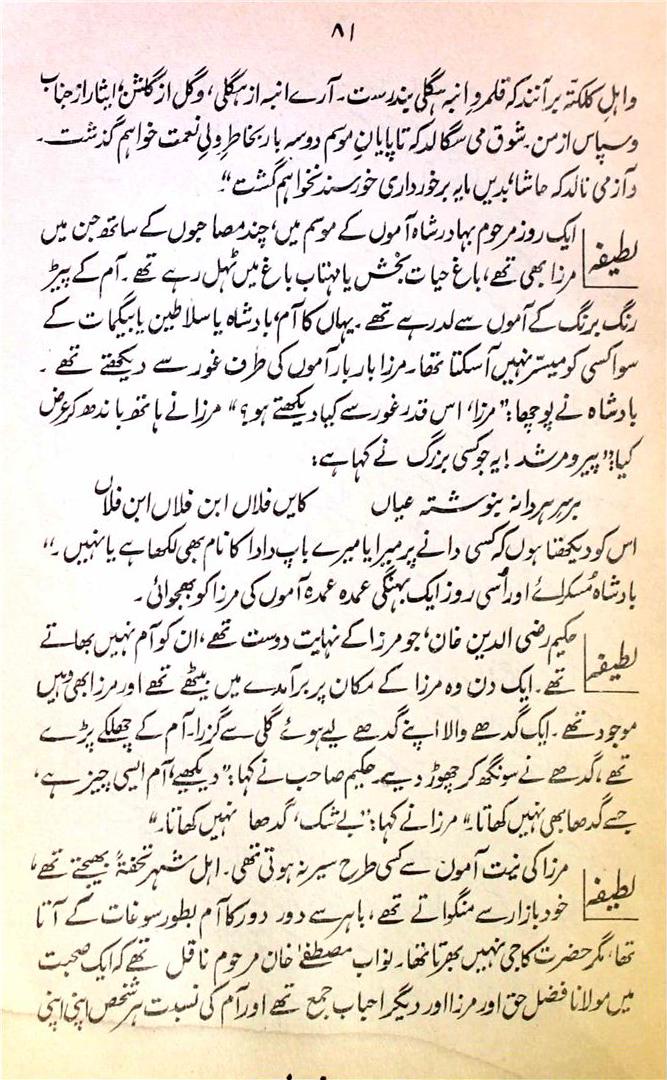 ۸۱
واہلِ کلکتّہ برآنند کہ قلمروِ انبہ ہگلی بندرست۔ آرے انبہ از ہگلی، وگل از گلشن؛ ایثار از جناب
وسپاس از من۔ شوق می سگالد کہ تا پایانِ موسم دوسہ بار بخاطرِ ولیِ نعمت خواہم گذشت۔
وآز می نالد کہ حاشا، بدیں مایہ برخورداری خورسند نخواہم گشت"۔
لطیفہ ایک روز مرحوم بہادر شاہ آموں کے موسم میں، چند مصاحبوں کے ساتھ جن میں
مرزا بھی تھے، باغ حیات بخش یا مہتاب باغ میں ٹہل رہے تھے۔ آم کے پیڑ
رنگ برنگ کے آموں سے لدر ہے تھے۔ یہاں کا آم، بادشاہ یا سلاطین یا بیگمات کے
سوا کسی کو میسّر نہیں آسکتا تھا۔ مرزا بار بار آموں کی طرف غور سے دیکھتے تھے۔
بادشاہ نے پوچھا: "مرزا، اس قدر غور سے کیا دیکھتے ہو؟" مرزا نے ہاتھ باندھ کر عرض
کیا: "پیر و مرشد! یہ جو کسی بزرگ نے کہا ہے:
برسرِ ہر دانہ بنوشتہ عیاں کایں فلاں ابن فلاں ابن فلاں
اس کو دیکھتا ہوں کہ کسی دانے پر میرا یا میرے باپ دادا کا نام بھی لکھا ہے یا نہیں۔"
بادشاہ مُسکرائے اور اُسی روز ایک بہنگی عمدہ عمدہ آموں کی مرزا کو بھجوائی۔
لطیفہ حکیم رضی الدین خان، جو مرزا کے نہایت دوست تھے، ان کو آم نہیں بھاتے
تھے۔ ایک دن وہ مرزا کے مکان پر برآمدے میں بیٹھے تھے اور مرزا بھی وہیں
موجود تھے۔ ایک گدھے والا اپنے گدھے لیے ہوئے گلی سے گزرا۔ آم کے چھلکے پڑے
تھے، گدھے نے سونگھ کر چھوڑ دیے۔ حکیم صاحب نے کہا: "دیکھیے، آم ایسی چیز ہے،
جسے گدھا بھی نہیں کھاتا۔" مرزا نے کہا: "بے شک، گدھا نہیں کھاتا۔"
لطیفہ مرزا کی نیت آموں سے کسی طرح سیر نہ ہوتی تھی۔ اہلِ شہر تحفۃً بھیجتے تھے،
خود بازار سے منگواتے تھے، باہر سے دور دور کا آم بطور سوغات کے آتا
تھا، مگر حضرت کا جی نہیں بھرتا تھا۔ نواب مصطفےٰ خان مرحوم ناقل تھے کہ ایک صحبت
میں مولانا فضل حق اور مرزا اور دیگر احباب جمع تھے اور آم کی نسبت ہر شخص اپنی اپنی